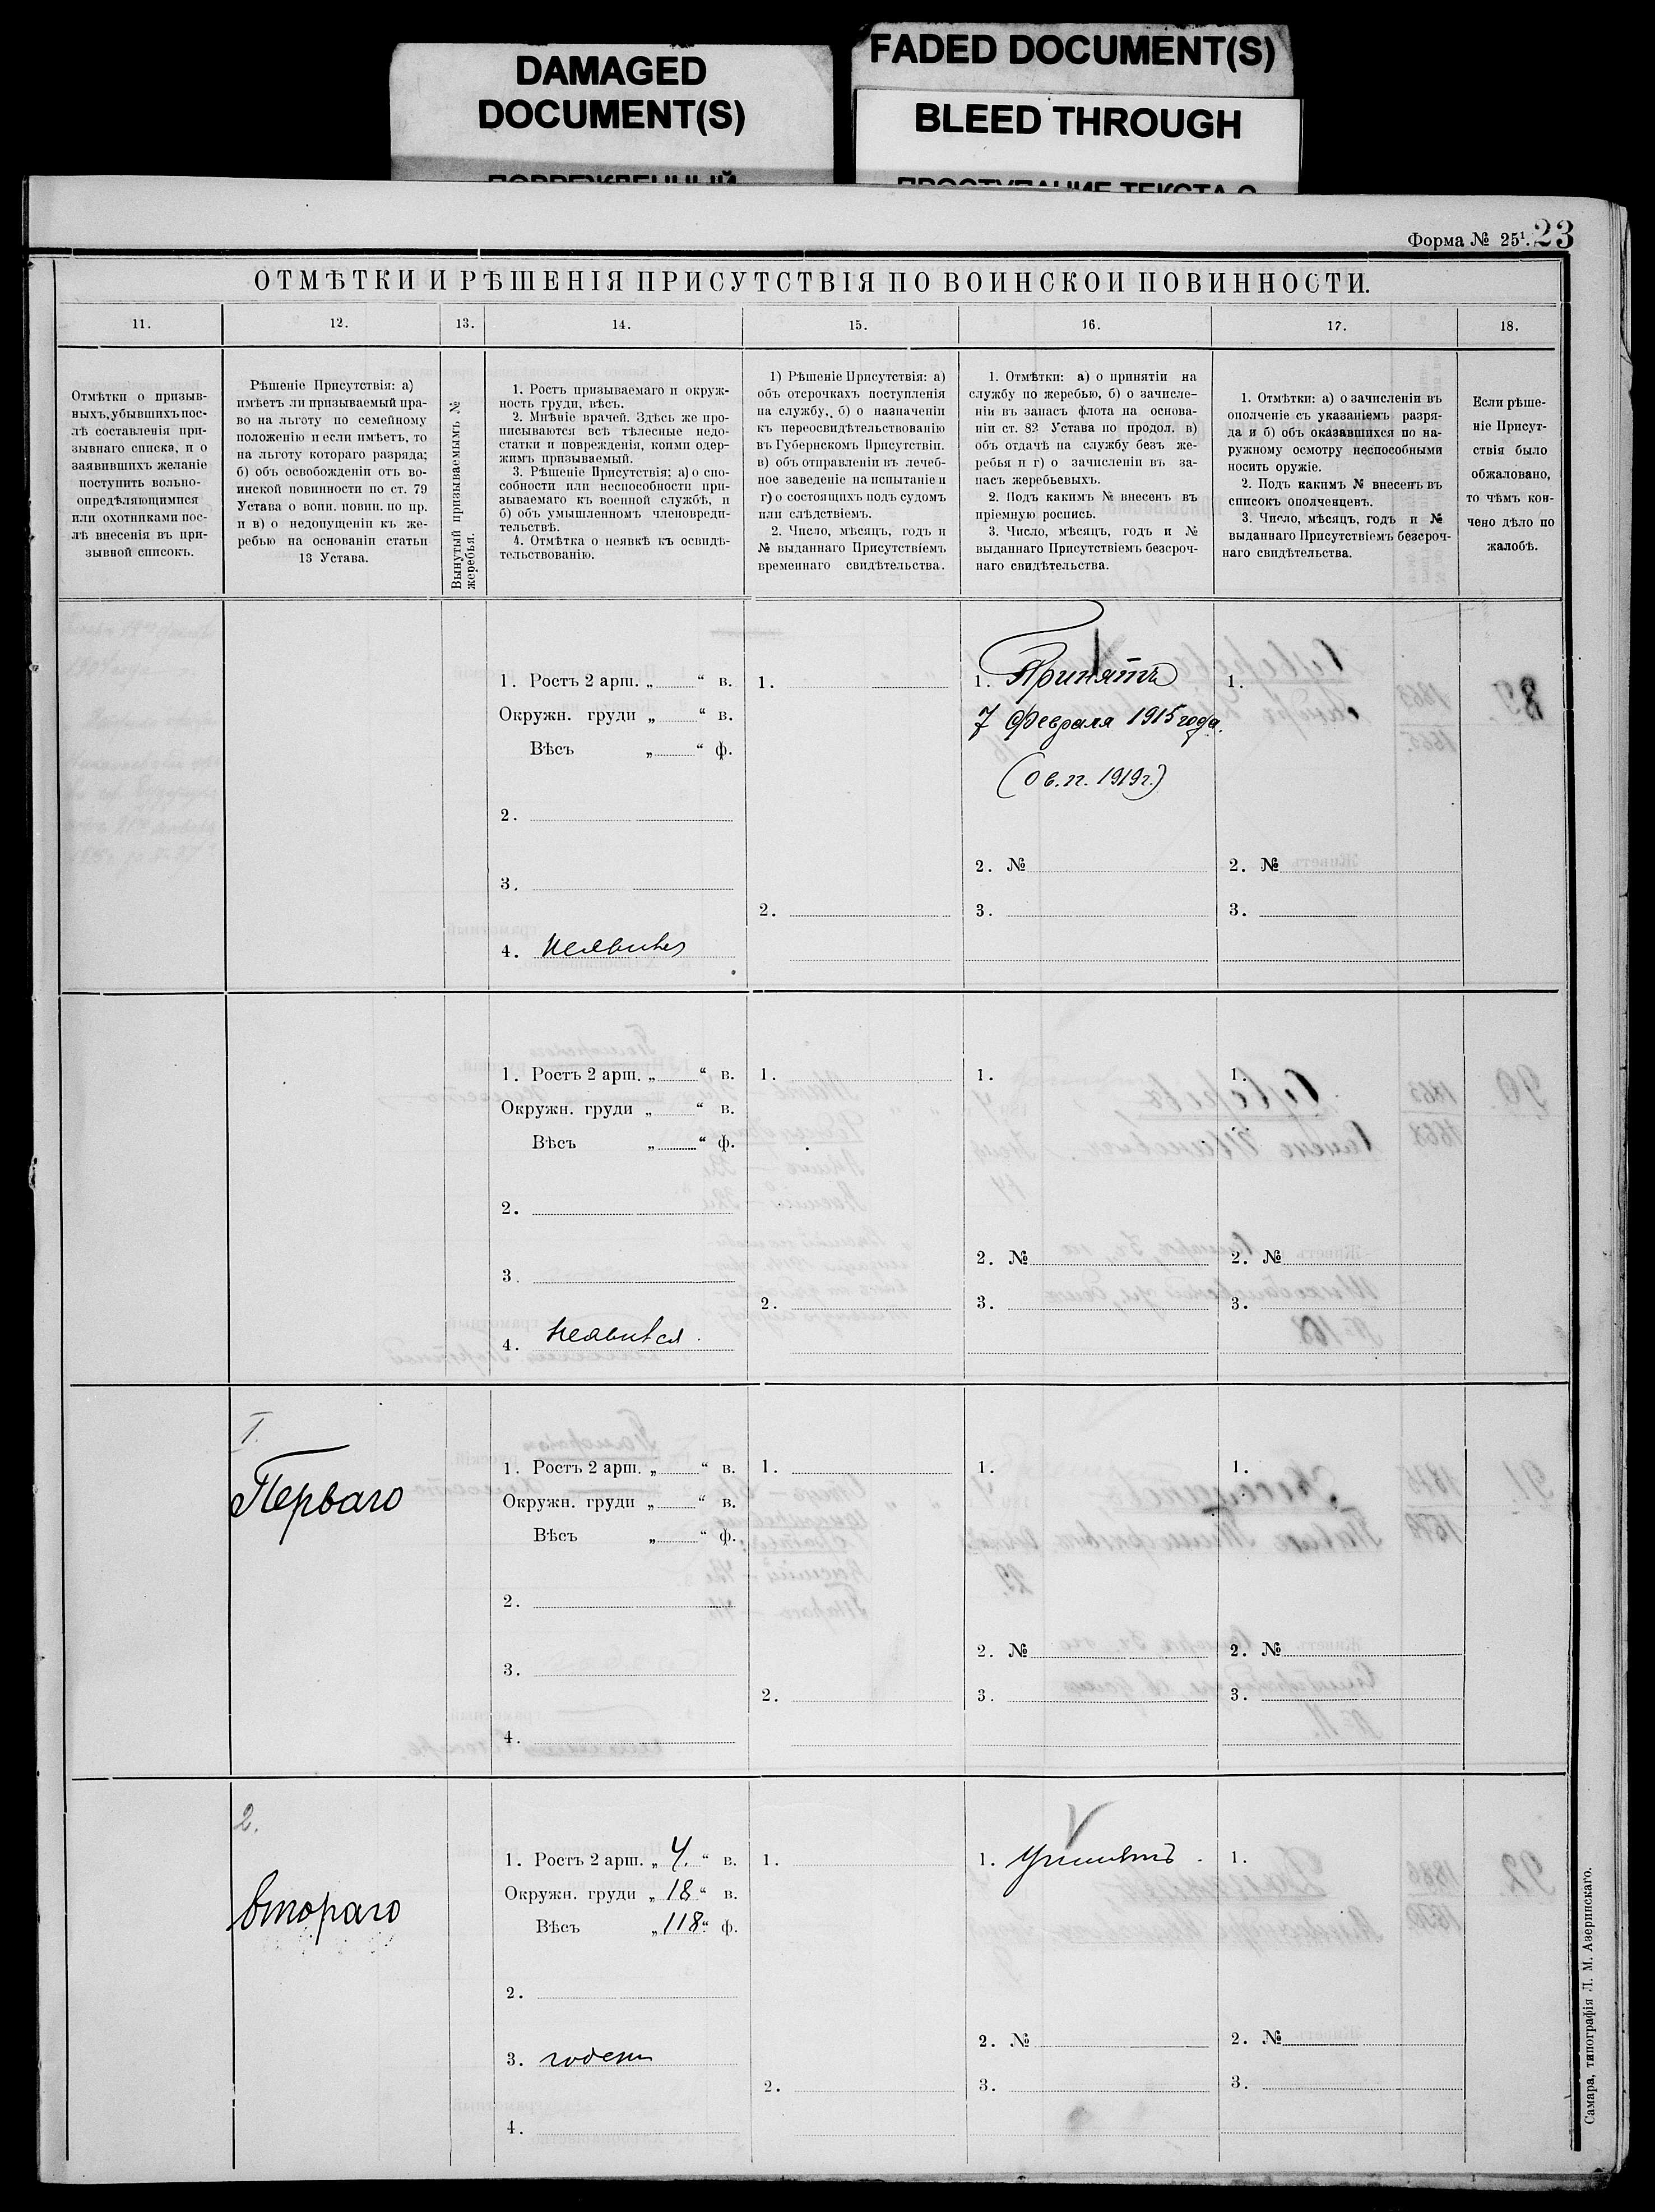 DAMAGED
DOCUMENT(S)
FADED DOCUMENT(S)
BLEED THROUGH
Форма № 25¹.
23
ОТМѢТКИ И РѢШЕНІЯ ПРИСУТСТВІЯ ПО ВОИНСКОЙ ПОВИННОСТИ.
11.
12.
13.
14.
15.
16.
17.
18.
Отмѣтки о призыв-
ныхъ, убывшихъ пос-
лѣ составленія при-
зывнаго списка, и о
заявившихъ желаніе
поступить вольно-
опредѣляющимися
или охотниками пос-
лѣ внесенія въ при-
зывной списокъ.
Рѣшеніе Присутствія: а)
имѣетъ ли призываемый пра-
во на льготу по семейному
положенію и если имѣетъ, то
на льготу котораго разряда;
б) объ освобожденіи отъ во-
инской повинности по ст. 79
Устава о воин. повин. по пр.
и в) о недопущеніи къ же-
ребью на основаніи статьи
13 Устава.
Вынутый призываемымъ №
жеребья.
1. Ростъ призываемаго и окруж-
ность груди, вѣсъ.
2. Мнѣніе врачей. Здѣсь же про-
писываются всѣ тѣлесные недо-
статки и поврежденія, коими одер-
жимъ призываемый.
3. Рѣшеніе Присутствія; а) о спо-
собности или неспособности при-
зываемаго къ военной службѣ, и
б) объ умышленномъ членовреди-
тельствѣ.
4. Отмѣтка о неявкѣ къ освидѣ-
тельствованію.
1) Рѣшеніе Присутствія: а)
объ отсрочкахъ поступленія
на службу, б) о назначеніи
къ переосвидѣтельствованію
въ Губернскомъ Присутствіи.
в) объ отправленіи въ лечеб-
ное заведеніе на испытаніе и
г) о состоящихъ подъ судомъ
или слѣдствіемъ.
2. Число, мѣсяцъ, годъ и
№ выданнаго Присутствіемъ
временнаго свидѣтельства.
1. Отмѣтки: а) о принятіи на
службу по жеребью, б) о зачисле-
ніи въ запасъ флота на основа-
ніи ст. 82 Устава по продол. в)
объ отдачѣ на службу безъ же-
ребья и г) о зачисленіи въ за-
пасъ жеребьевыхъ.
2. Подъ какимъ № внесенъ въ
пріемную роспись.
3. Число, мѣсяцъ, годъ и №
выданнаго Присутствіемъ безсроч-
наго свидѣтельства.
1. Отмѣтки: а) о зачисленіи въ
ополченіе съ указаніемъ разря-
да и б) объ оказавшихся по на-
ружному осмотру неспособными
носить оружіе.
2. Подъ какимъ № внесенъ въ
списокъ ополченцевъ.
3. Число, мѣсяцъ, годъ и №
выданнаго Присутствіемъ безсроч-
наго свидѣтельства.
Если рѣше-
ніе Присут-
ствія было
обжаловано,
то чѣмъ кон-
чено дѣло по
жалобѣ.
1. Ростъ 2 арш. „ “ в.
Окружн. груди „ “ в.
Вѣсъ „ “ ф.
2.
3.
4. Неявился
1.
2.
1. Принятъ
7 февраля 1915 года.
2. №
3.
1.
2. №
3.
1. Ростъ 2 арш. „ “ в.
Окружн. груди „ “ в.
Вѣсъ „ “ ф.
2.
3.
4. Неявился.
1.
2.
1.
2. №
3.
1.
2. №
3.
1.
Перваго
1. Ростъ 2 арш. „ “ в.
Окружн. груди „ “ в.
Вѣсъ „ “ ф.
2.
3.
4.
1.
2.
1.
2. №
3.
1.
2. №
3.
2.
втораго
1. Ростъ 2 арш. „ 4. “ в.
Окружн. груди „ 18 “ в.
Вѣсъ „ 118 “ ф.
2.
3. годенъ
4.
1.
2.
1. Принятъ.
2. №
3.
1.
2. №
3.
Самара, типографія Л. М. Азеринскаго.